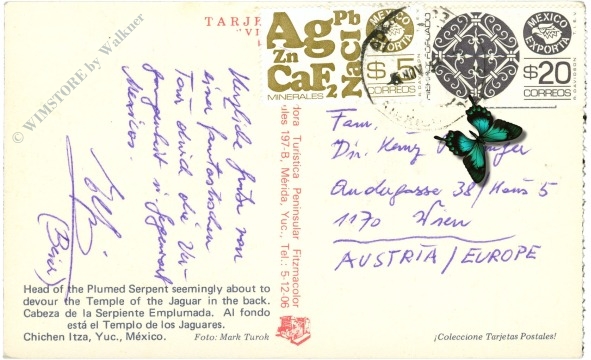 TARJE
"VI
© WIMSTORE by Walkner
Herzliche Grüße von
einer fantastischen
Tour durch die Ver-
gangenheit u. Gegenwart
Mexicos.
Ag Pb
Zn
CaF2
NaCl
MINERALES
MEXICO
EXPORTA
$5
CORREOS
MEXICO
EXPORTA
$20
CORREOS
Fam.
Andergasse 38/Haus 5
1170 Wien
AUSTRIA/EUROPE
dora Turística Peninsular Fitzmacolor
ules 197-B, Mérida, Yuc., Tel.: 5-12-06
Head of the Plumed Serpent seemingly about to
devour the Temple of the Jaguar in the back.
Cabeza de la Serpiente Emplumada. Al fondo
está el Templo de los Jaguares.
Chichen Itza, Yuc., México.
Foto: Mark Turok
¡Coleccione Tarjetas Postales!